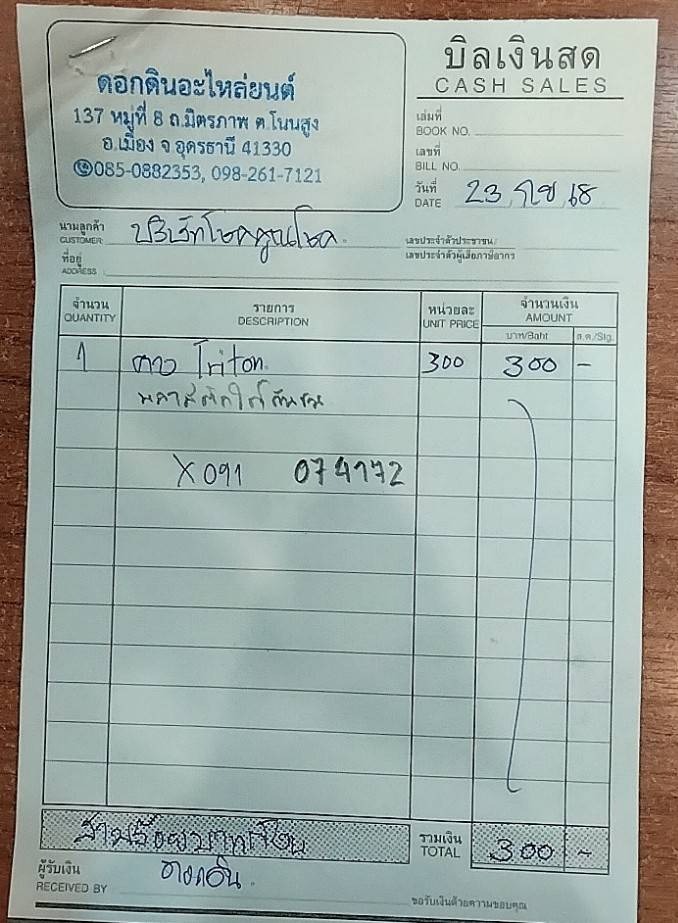 ดอกดินอะไหล่ยนต์
137 หมู่ที่ 8 ถ.มิตรภาพ ต.โนนสูง
อ.เมือง จ.อุดรธานี 41330
085-0882353, 098-261-7121
บิลเงินสด
CASH SALES
เล่มที่
BOOK NO.
เลขที่
BILL NO.
วันที่
DATE 23 กย 68
นามลูกค้า
CUSTOMER บริษัทโชคคูณโชค
เลขประจำตัวประชาชน
เลขประจำตัวผู้เสียภาษีอากร
ที่อยู่
ADDRESS
จำนวน รายการ หน่วยละ จำนวนเงิน
QUANTITY DESCRIPTION UNIT PRICE AMOUNT
บาท/Baht ส.ต./Stg.
1 Triton 300 300 -
พลาสติกใต้กันชน
X091 074172
สามร้อยบาทถ้วน
รวมเงิน
TOTAL 300 -
ผู้รับเงิน
RECEIVED BY ดอกดิน
ขอรับเงินด้วยความขอบคุณ